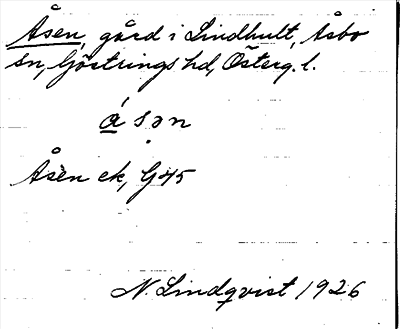 Åsen, gård i Lindhult, Åsbo
sn, Göstrings hd, Österg. l.
ásən
Åsen ek, G45
N. Lindqvist 1926